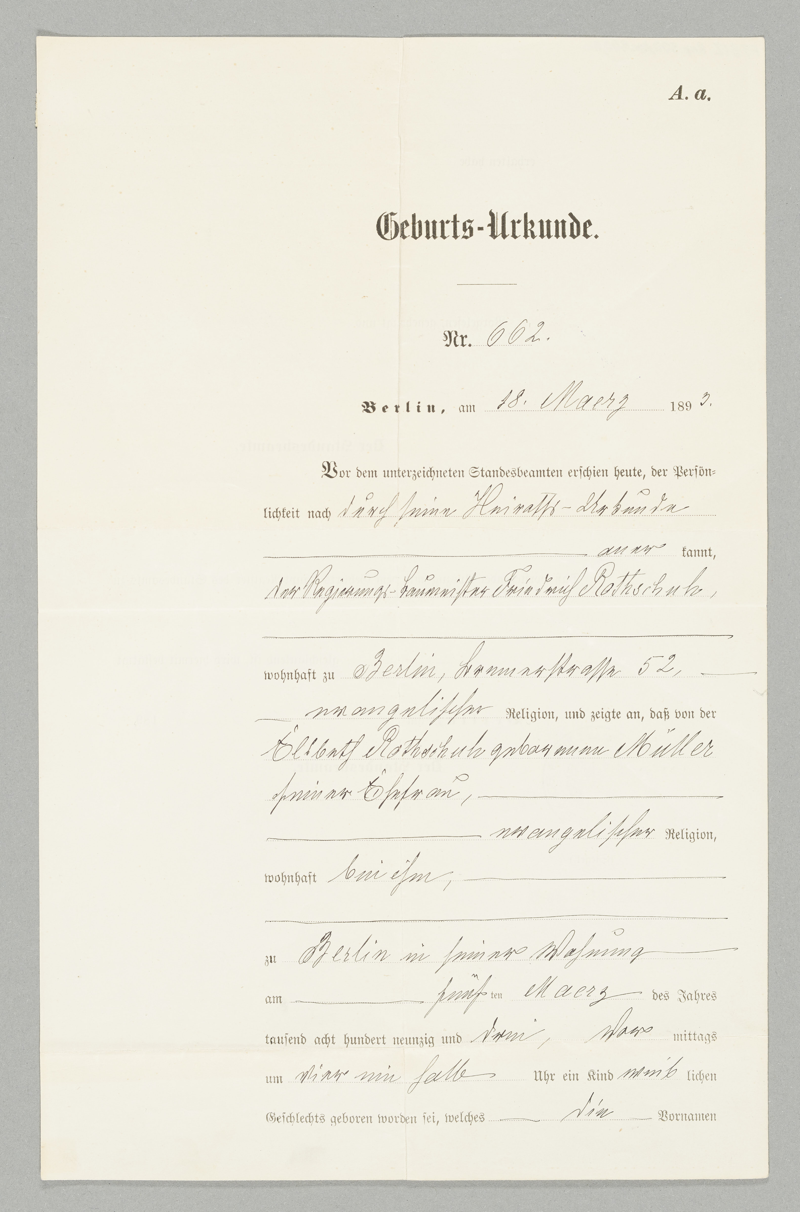 A. a.
Geburts-Urkunde.
Nr. 662.
Berlin, am 18. Maerz 1893.
Vor dem unterzeichneten Standesbeamten erschien heute, der Persön-
lichkeit nach durch seine Heiraths-Urkunde
aner kannt,
der Regierungs-Baumeister Friedrich Rothschuh,
wohnhaft zu Berlin, Bremerstrasse 52,
evangelischer Religion, und zeigte an, daß von der
Elsbeth Rothschuh geborenen Müller
seiner Ehefrau,
evangelischer Religion,
wohnhaft bei ihm,
zu Berlin in seiner Wohnung
am fünf ten Maerz des Jahres
tausend acht hundert neunzig und drei, Vor mittags
um vier ein halb Uhr ein Kind weib lichen
Geschlechts geboren worden sei, welches die Vornamen